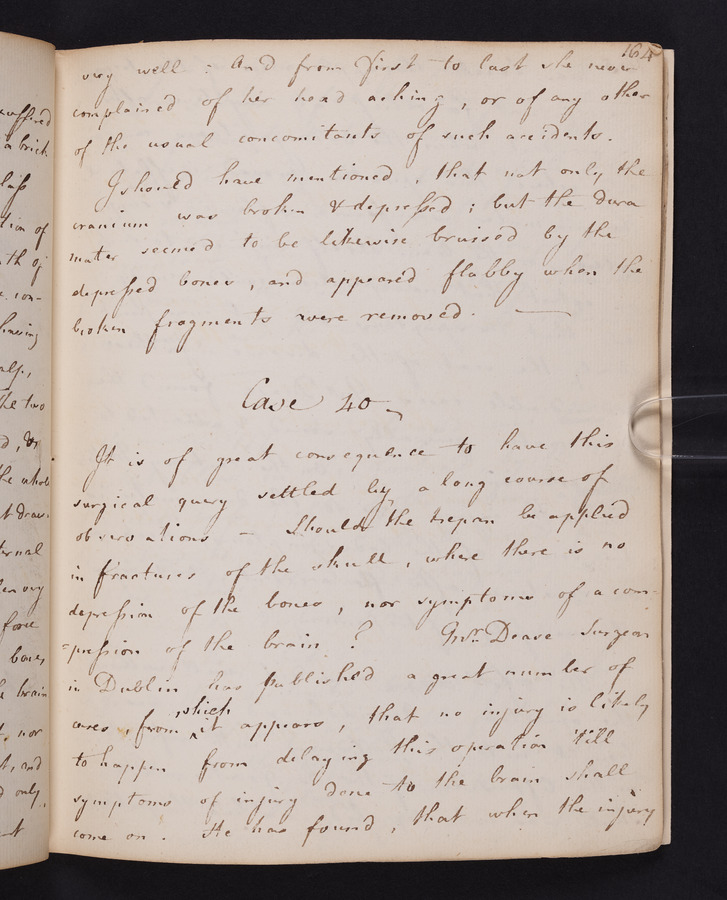 164
very well : And from first to last she never
complained of her head aching, or of any other
of the usual concomitants of such accidents.
I should have mentioned, that not only the
cranium was broken & depressed ; but the dura
mater seemed to be likewise bruised by the
depressed bones, and appeared flabby when the
broken fragments were removed. —
Case 40
It is of great consequence to have this
surgical query settled by a long course of
observations – Should the trepan be applied
in fractures of the skull, where there is no
depression of the bones, nor symptoms of a com-
=pression of the brain ? Mr. Dease Surgeon
in Dublin has published a great number of
cases, from which it appears, that no injury is likely
to happen from delaying this operation 'till
symptoms of injury done to the brain shall
come on. He has found, that when the injury
suffered
a brick
tion of
th of
con-
having
alp,
The two
d, &
the whole
ternal
fore
bones
brain
, nor
t, and
d only,